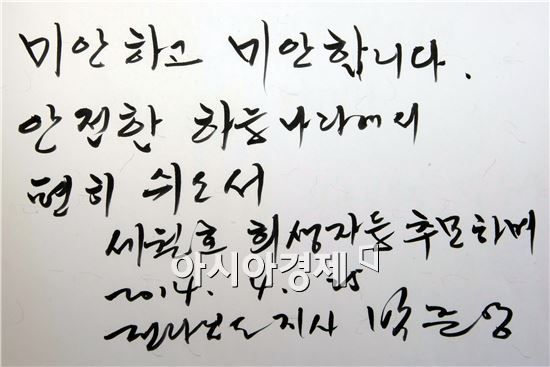 미안하고 미안합니다.
안전한 하늘나라에서
편히 쉬소서
세월호 희생자들 추모하며
아시아경제
2014. 4. 25
전라남도지사 박준영